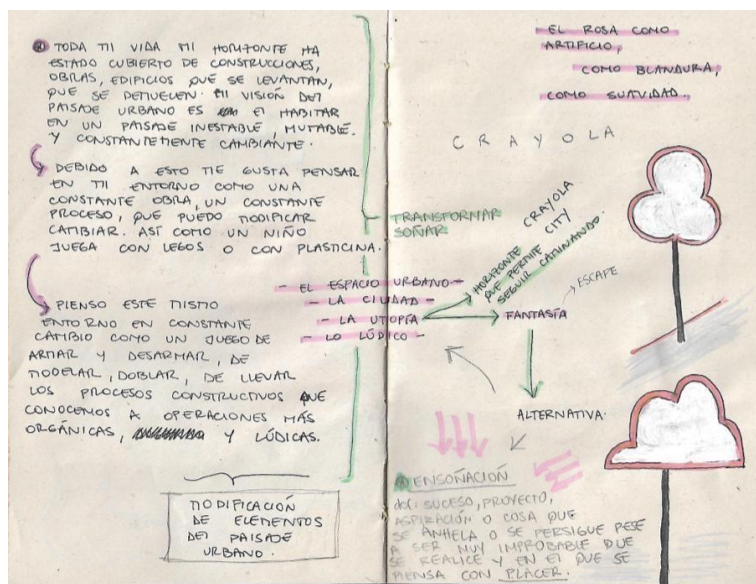 TODA MI VIDA MI HORIZONTE HA
ESTADO CUBIERTO DE CONSTRUCCIONES,
OBRAS, EDIFICIOS QUE SE LEVANTAN,
QUE SE DEMUELEN. MI VISIÓN DEL
PAISAJE URBANO ES EL HABITAR
EN UN PAISAJE INESTABLE, MUTABLE
Y CONSTANTEMENTE CAMBIANTE.
DEBIDO A ESTO ME GUSTA PENSAR
EN MI ENTORNO COMO UNA
CONSTANTE OBRA, UN CONSTANTE
PROCESO, QUE PUEDO MODIFICAR
CAMBIAR. ASÍ COMO UN NIÑO
JUEGA CON LEGOS O CON PLASTICINA.
PIENSO ESTE MISMO
ENTORNO EN CONSTANTE
CAMBIO COMO UN JUEGO DE
ARMAR Y DESARMAR, DE
MODELAR, DOBLAR, DE LLEVAR
LOS PROCESOS CONSTRUCTIVOS QUE
CONOCEMOS A OPERACIONES MÁS
ORGÁNICAS, Y LÚDICAS.
MODIFICACIÓN
DE ELEMENTOS
DEL PAISAJE
URBANO.
EL ROSA COMO
ARTIFICIO,
COMO BLANDURA,
COMO SUAVIDAD.
CRAYOLA
TRANSFORMAR
SOÑAR
- EL ESPACIO URBANO -
- LA CIUDAD -
- LA UTOPÍA -
- LO LÚDICO -
CRAYOLA
CITY
HORIZONTE
QUE PERMITE
SEGUIR CAMINANDO.
FANTASÍA
ESCAPE
ALTERNATIVA.
ENSOÑACIÓN
def: SUCESO, PROYECTO,
ASPIRACIÓN O COSA QUE
SE ANHELA O SE PERSIGUE PESE
A SER MUY IMPROBABLE QUE
SE REALICE Y EN EL QUE SE
PIENSA CON PLACER.